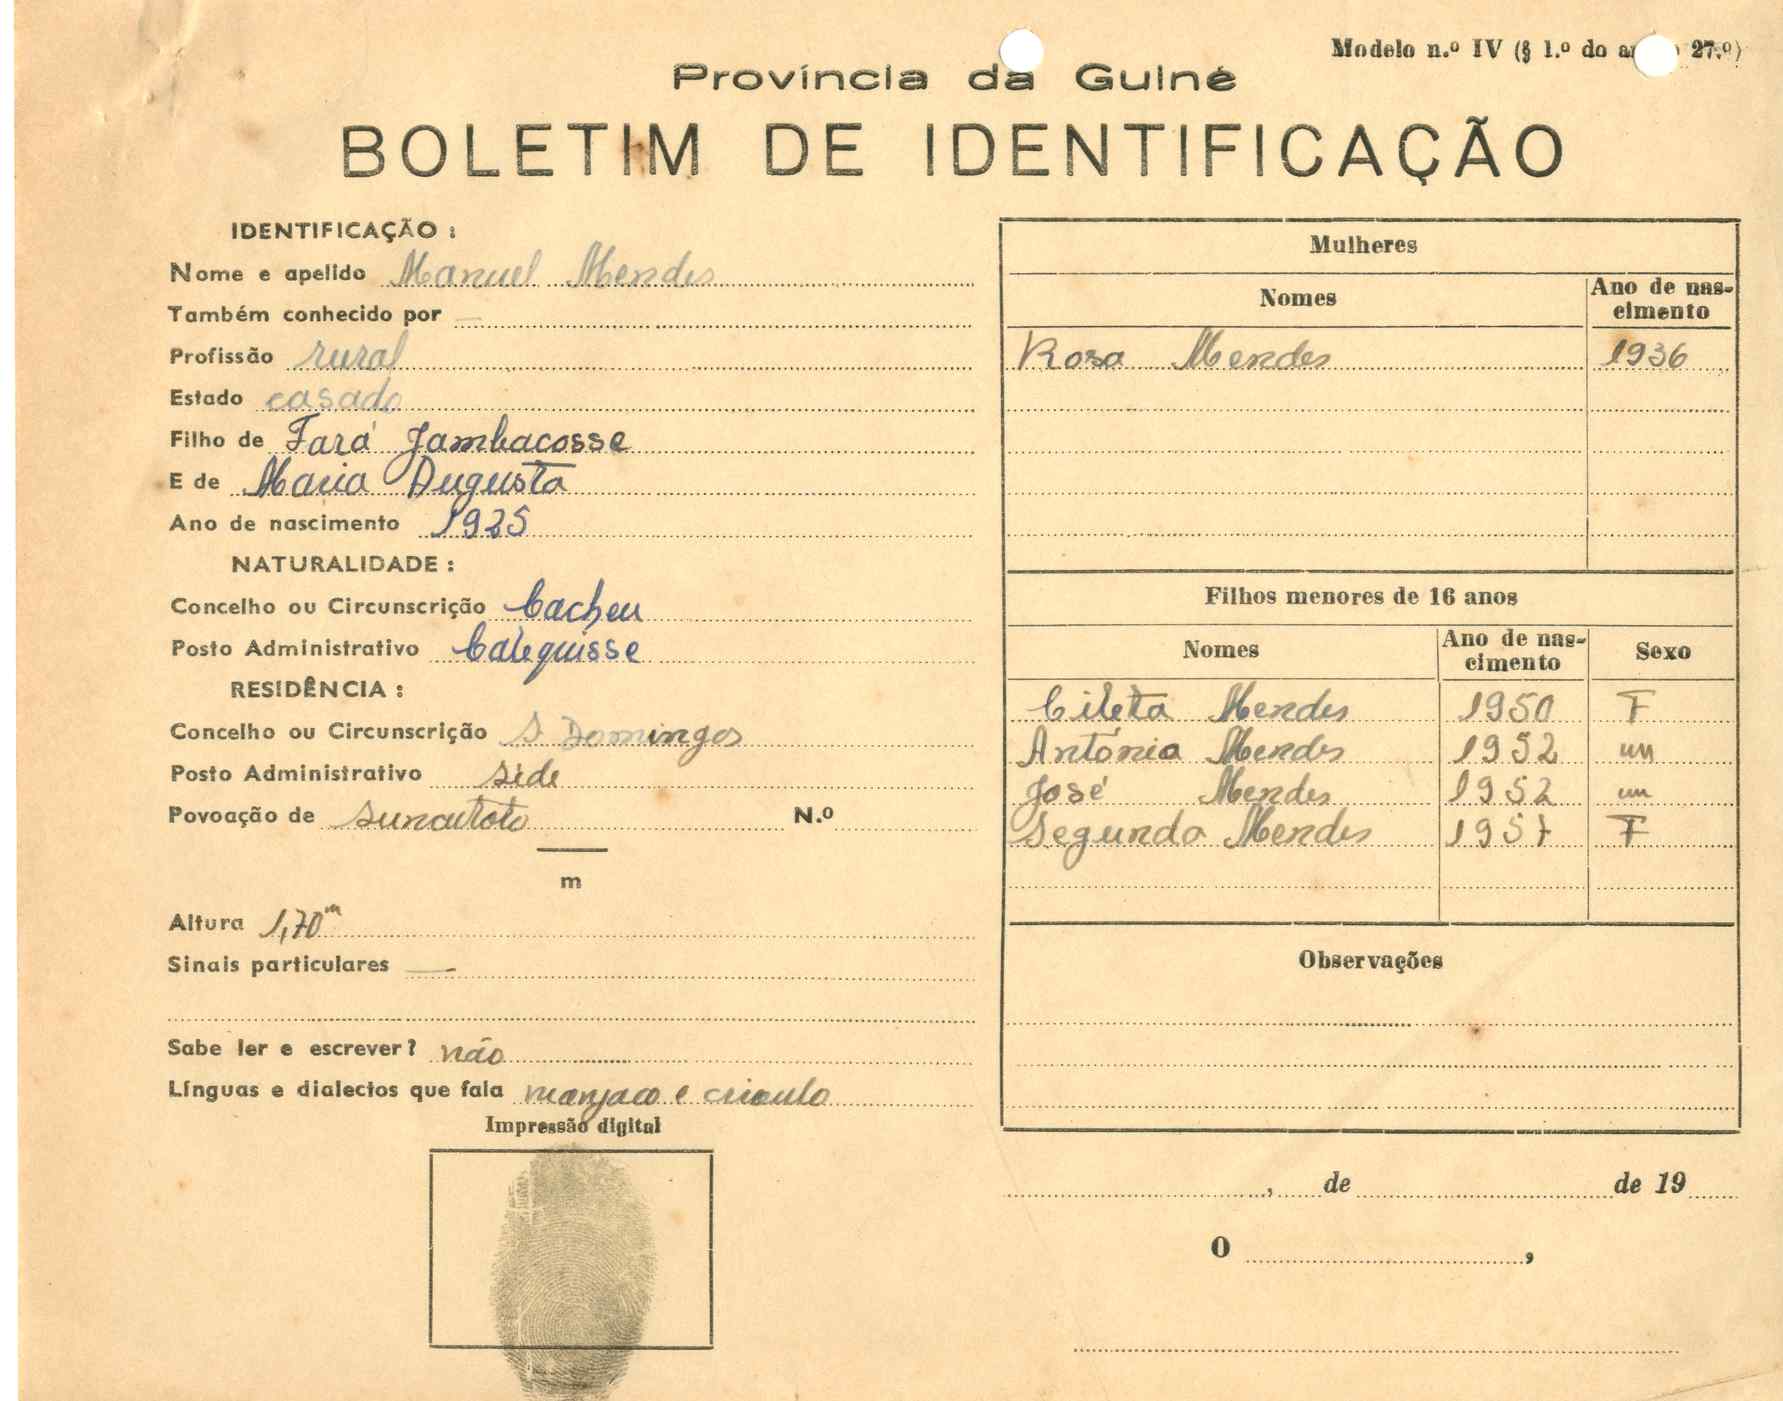 Modelo n.º IV (§ 1.º do 27.º)
Província da Guiné
BOLETIM DE IDENTIFICAÇÃO
IDENTIFICAÇÃO :
Nome e apelido Manuel Mendes
Também conhecido por —
Profissão rural
Estado casado
Filho de Fará Jambacosse
E de Maria Augusta
Ano de nascimento 1925
NATURALIDADE :
Concelho ou Circunscrição Cacheu
Posto Administrativo Calequisse
RESIDÊNCIA :
Concelho ou Circunscrição S Domingos
Posto Administrativo side
Povoação de N.º
m
Altura 1,70m
Sinais particulares —
Sabe ler e escrever? não
Línguas e dialectos que fala manjaco e crioulo
Impressão digital
Mulheres
Nomes Ano de nascimento
Rosa Mendes 1936
Filhos menores de 16 anos
Nomes Ano de nascimento Sexo
Cileta Mendes 1950 F
António Mendes 1952 m
José Mendes 1952 m
Segunda Mendes 1957 F
Observações
, de de 19
O ,